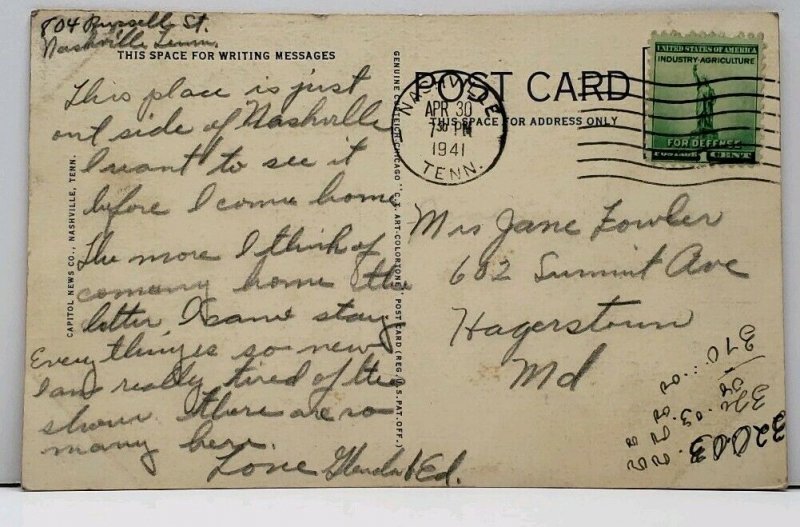 804 Russell St.
Nashville, Tenn.
THIS SPACE FOR WRITING MESSAGES
This place is just
out side of Nashville
I want to see it
before I come home
The more I think of
comeing home the
better, I same stay
Every things so new
I am really tired of the
show there are so
many here.
Love Glenda & Ed.
CAPITOL NEWS CO., NASHVILLE, TENN.
GENUINE CURTEICH-CHICAGO "C.T. ART-COLORTONE" POST CARD (REG. U.S. PAT. OFF.)
POST CARD
THIS SPACE FOR ADDRESS ONLY
NASHVILLE
APR 30
7 30 PM
1941
TENN.
UNITED STATES OF AMERICA
INDUSTRY-AGRICULTURE
FOR DEFENSE
POSTAGE 1 CENT
Mrs Jane Fowler
602 Summit Ave
Hagerstown
Md
32003